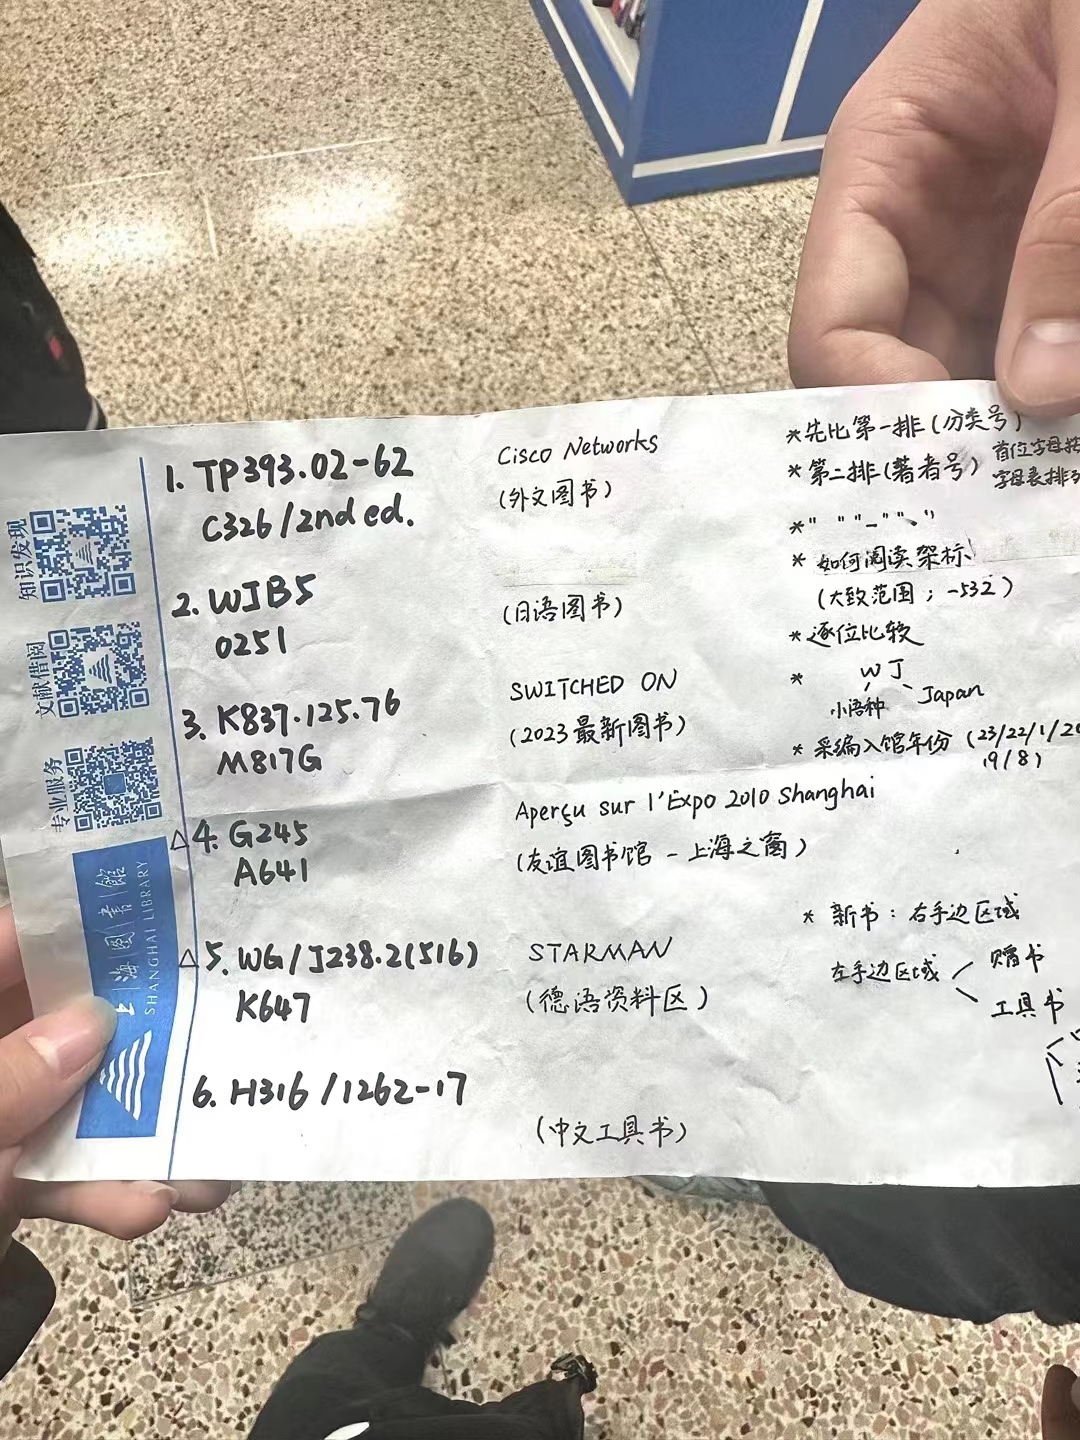 1. TP393.02-62
C326/2nd ed.
Cisco Networks
(外文图书)
2. WJB5
0251
(日语图书)
3. K837.125.76
M817G
SWITCHED ON
(2023最新图书)
△4. G245
A641
Aperçu sur l'Expo 2010 Shanghai
(友谊图书馆 - 上海之窗)
△5. WG/J238.2(516)
K647
STARMAN
(德语资料区)
6. H316/1262-17
(中文工具书)
*先比第一排(分类号)
*第二排(著者号)
首位字母按
字母表排
*" " "-" "、"
* 如何阅读架标
(大致范围; -532)
*逐位比较
* WJ
小语种 Japan
* 采编入馆年份 (23/22/1/20
9/8)
* 新书: 右手边区域
左手边区域
赠书
工具书
知识发现
文献借阅
专业服务
上海图书馆
SHANGHAI LIBRARY